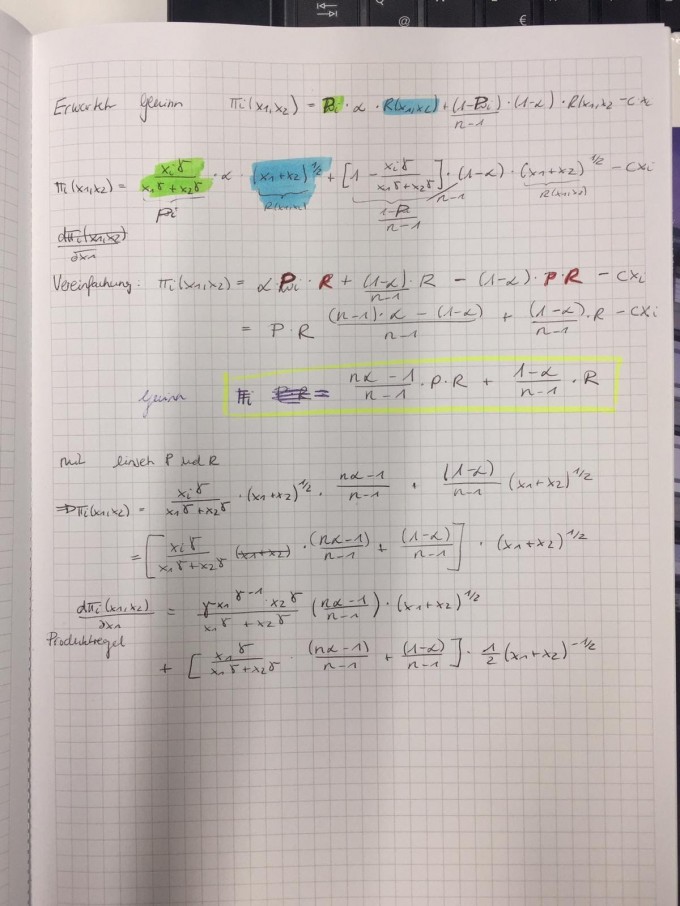 Erwarteter Gewinn πi(x1,x2) = Pi · α · R(x1,x2) + (1-Pi)/(n-1) · (1-α) · R(x1,x2) - cxi
πi(x1,x2) = xi^γ/(x1^γ + x2^γ) · α · (x1+x2)^1/2 + [1 - xi^γ/(x1^γ+x2^γ)]/(n-1) · (1-α) · (x1+x2)^1/2 - cxi
Pi R(x1,x2) (1-P)/(n-1) R(x1,x2)
dπi(x1,x2)/∂x1
Vereinfachung: πi(x1,x2) = α · Pi · R + (1-α)/(n-1) · R - (1-α) · P R - cxi
= P · R ((n-1)·α - (1-α))/(n-1) + (1-α)/(n-1) · R - cxi
Gewinn πi P·R = (nα-1)/(n-1) · P · R + (1-α)/(n-1) · R
P und R
⇒ πi(x1,x2) = xi^γ/(x1^γ+x2^γ) · (x1+x2)^1/2 · (nα-1)/(n-1) + (1-α)/(n-1) (x1+x2)^1/2
= [xi^γ/(x1^γ+x2^γ) (x1+x2) · (nα-1)/(n-1) + (1-α)/(n-1)] · (x1+x2)^1/2
dπi(x1,x2)/∂x1 = γx1^γ-1 · x2^γ/(x1^γ + x2^γ) (nα-1)/(n-1) · (x1+x2)^1/2
Produktregel
+ [x1^γ/(x1^γ+x2^γ) · (nα-1)/(n-1) + (1-α)/(n-1)] · 1/2 (x1+x2)^-1/2